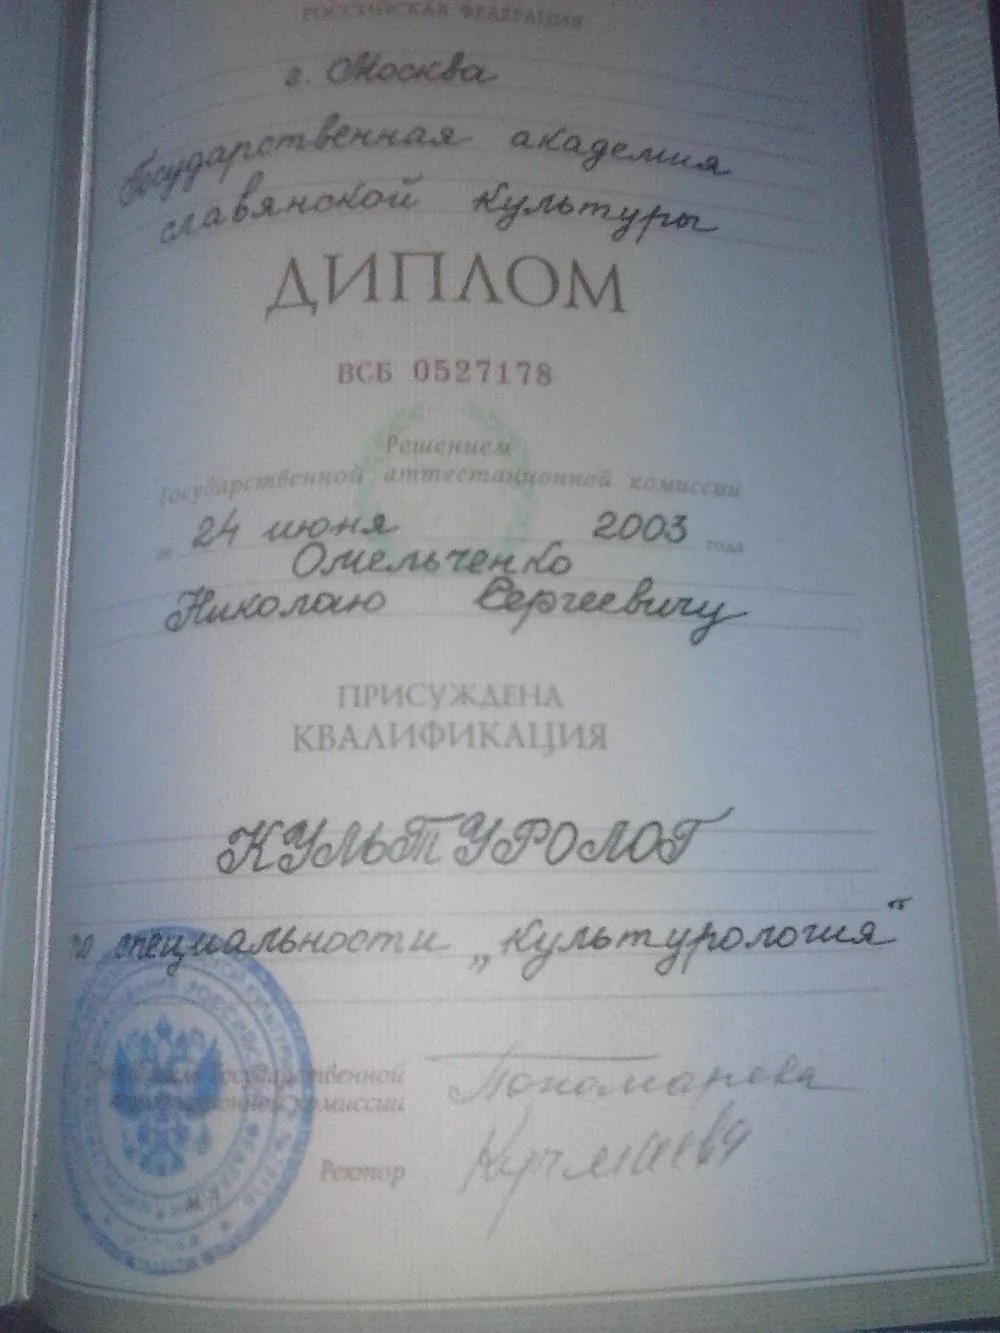 РОССИЙСКАЯ ФЕДЕРАЦИЯ
г. Москва
Государственная академия
славянской культуры
ДИПЛОМ
ВСБ 0527178
Решением
Государственной аттестационной комиссии
от 24 июня 2003 года
Омельченко
Николаю Сергеевичу
ПРИСУЖДЕНА
КВАЛИФИКАЦИЯ
КУЛЬТУРОЛОГ
по специальности „Культурология“
Государственной
комиссии
Ректор